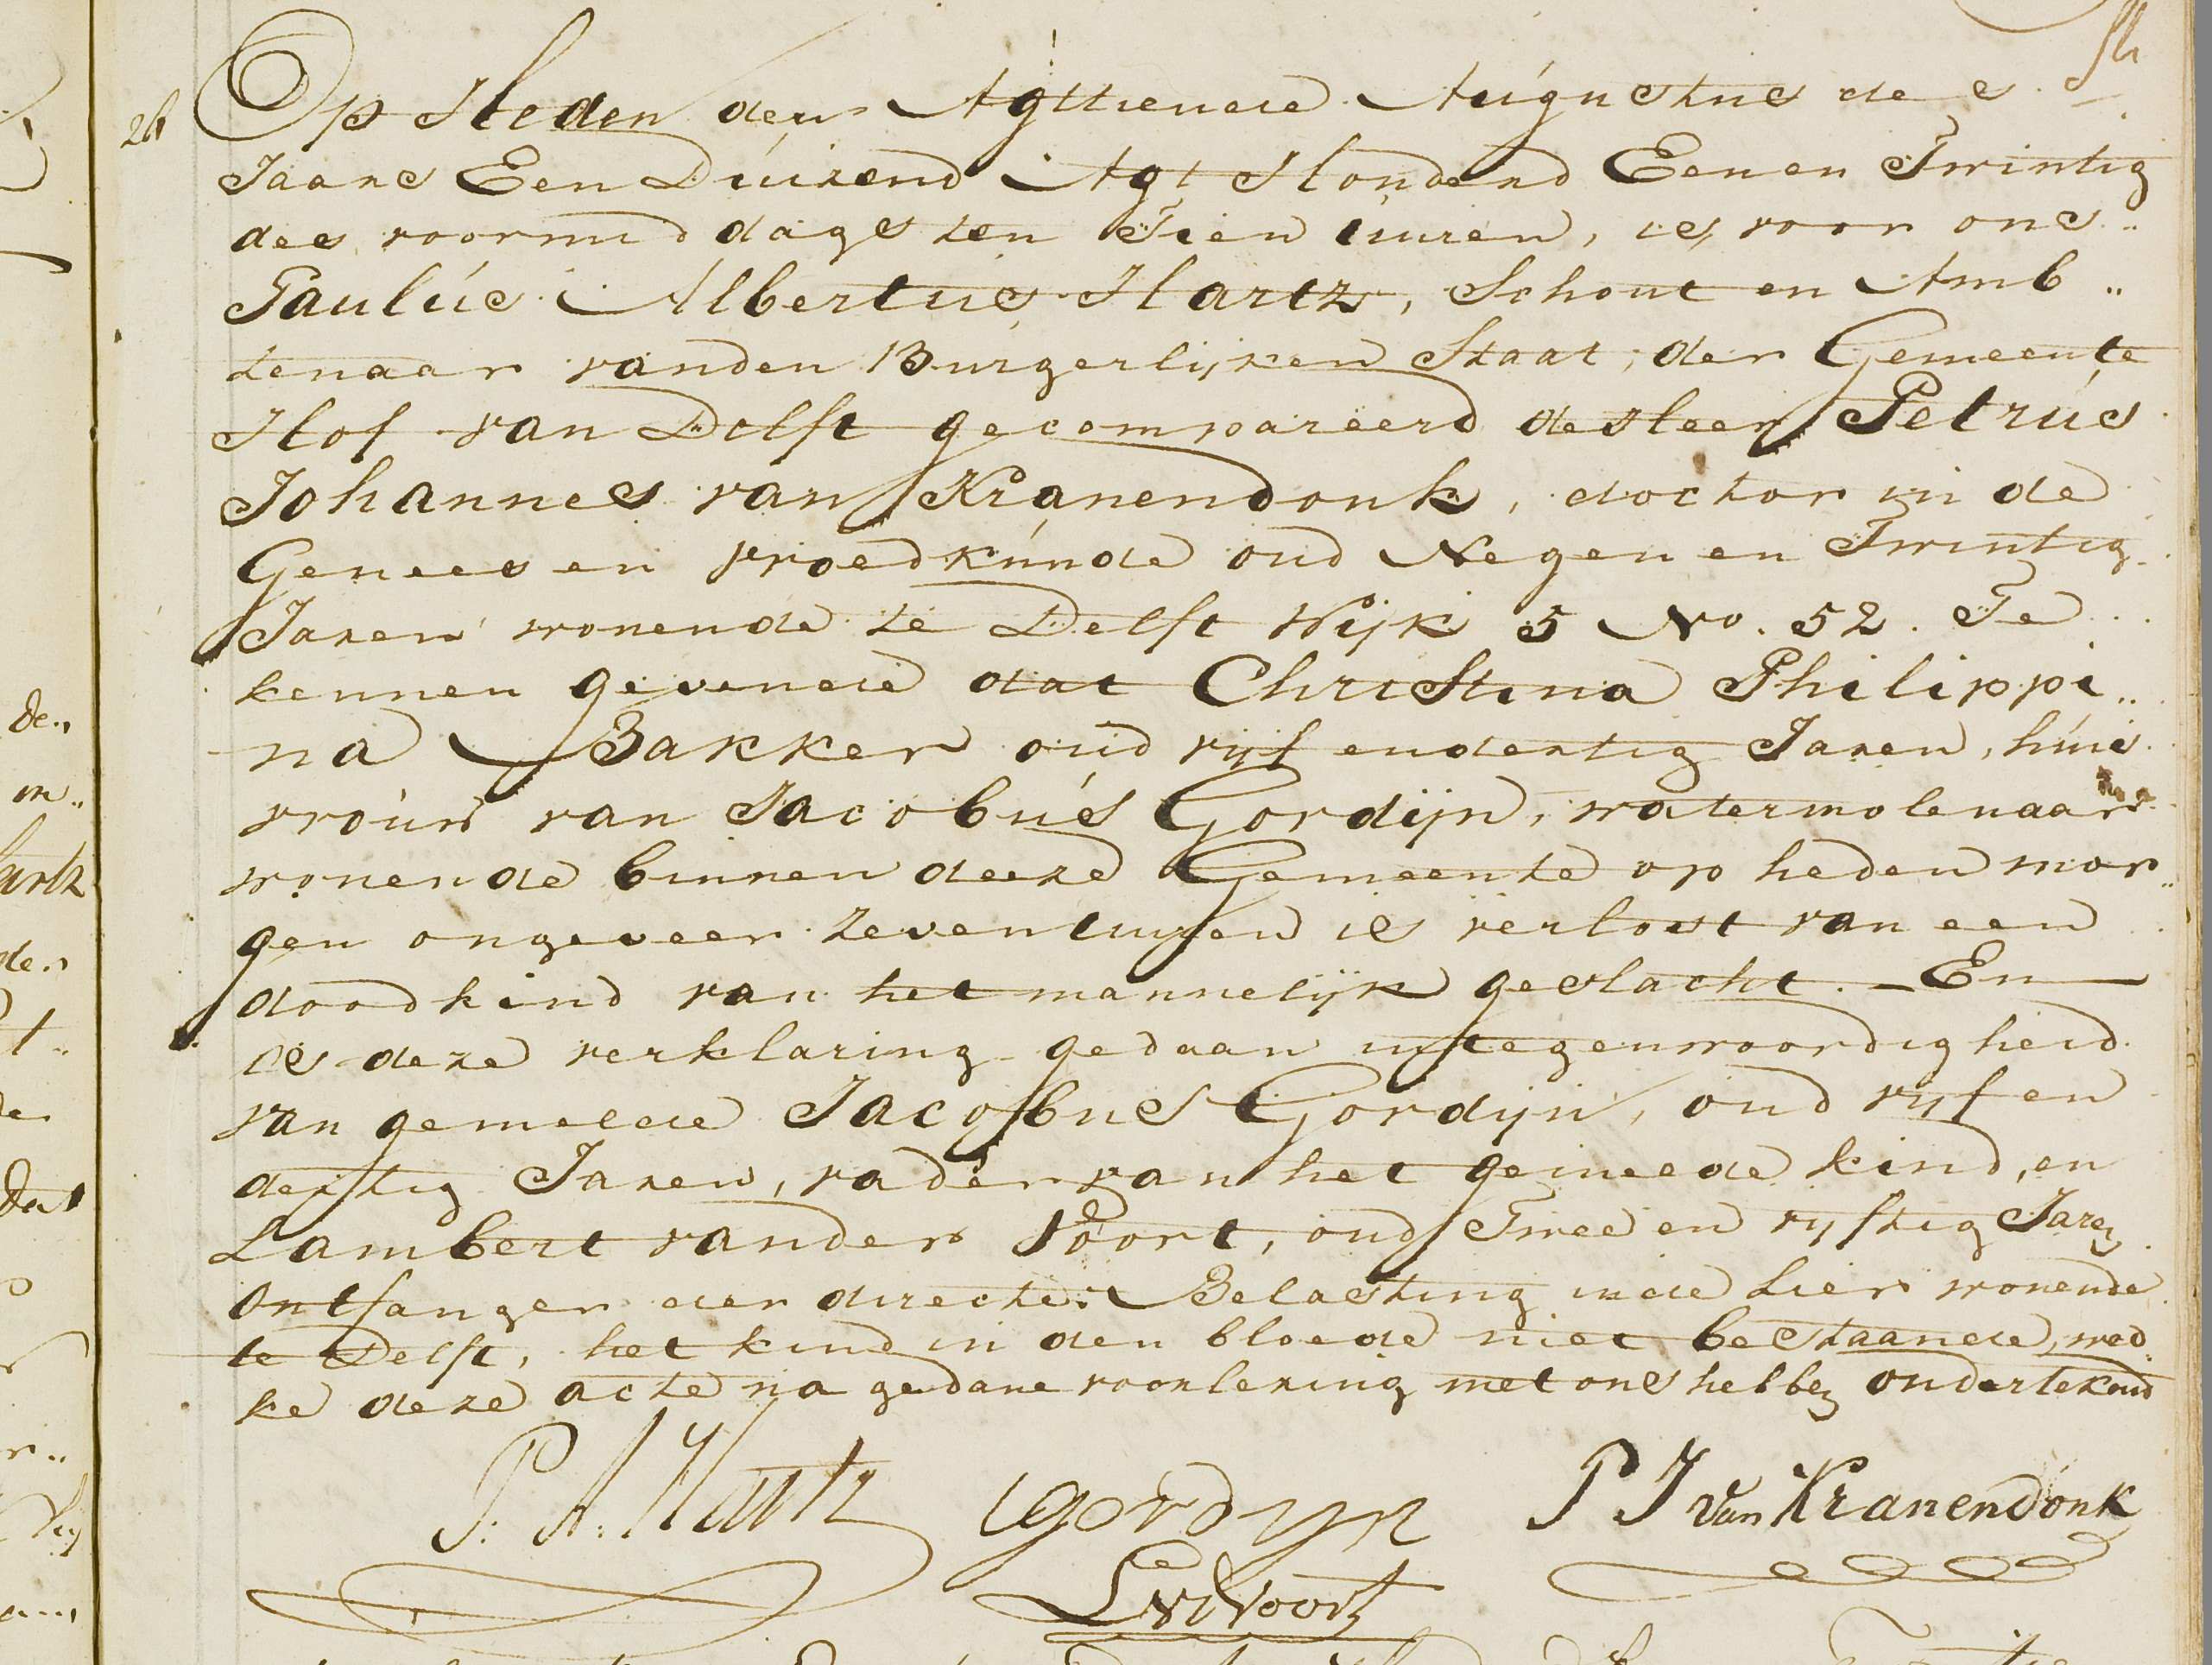 26
Op Heden den Agttiende Augustus des
Jaars Een Duizend Agt Honderd Eenen Twintig
des voormiddags ten Tien uuren, is voor ons
Paulus Albertus Hartz, Schout en Amb..
tenaar vanden Burgerlijken Staat, der Gemeente
Hof van Delft gecompareerd de Heer Petrus
Johannes van Kranendonk, doctor in de
Genees en vroedkunde oud Negen en Twintig
Jaren wonende te Delft Wijk 5 No. 52. Te
kennen gevende dat Christina Philippi..
na Bakker oud vijf endertig Jaren, huis
vrouw van Jacobus Gordijn, watermolenaar
wonende binnen deeze Gemeente op heden mor..
gen ongeveer zeven uuren is verlost van een
dood kind van het mannelijk geslacht. — En —
is deze verklaring gedaan in tegenwoordigheid
van gemelde Jacobus Gordijn, oud vijf en
dertig Jaren, vader van het gemelde kind, en
Lambert vander Voort, oud Twee en vijftig Jaren
Ontfanger der directe Belasting in de Lier wonende
te Delft, het kind in den bloede niet bestaande, wel
ke deze acte na gedane voorlezing met ons hebben ondertekend
P. A. Hartz Gordyn P J van Kranendonk
L vd Voort